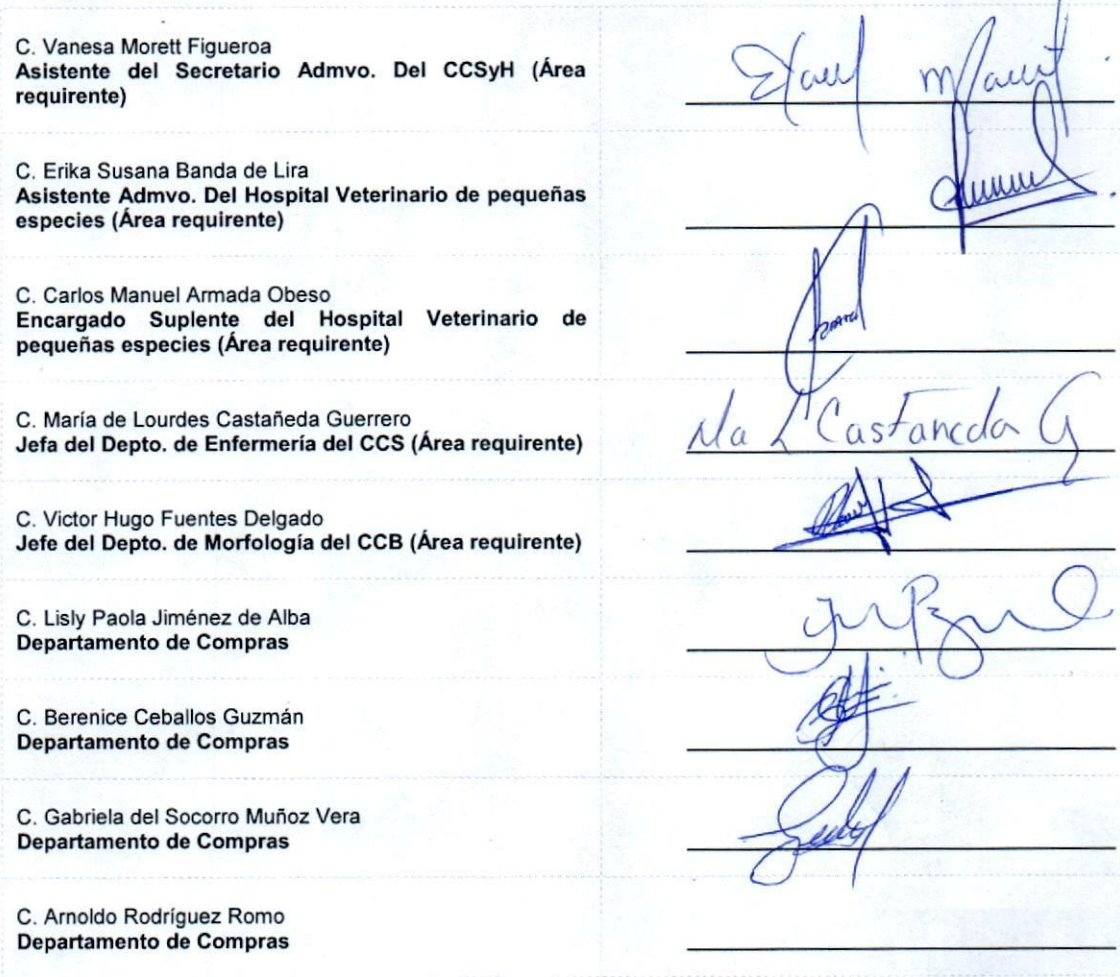 C. Vanesa Morett Figueroa
Asistente del Secretario Admvo. Del CCSyH (Área
requirente)
C. Erika Susana Banda de Lira
Asistente Admvo. Del Hospital Veterinario de pequeñas
especies (Área requirente)
C. Carlos Manuel Armada Obeso
Encargado Suplente del Hospital Veterinario de
pequeñas especies (Área requirente)
C. María de Lourdes Castañeda Guerrero
Jefa del Depto. de Enfermería del CCS (Área requirente)
Ma L Castaneda G
C. Victor Hugo Fuentes Delgado
Jefe del Depto. de Morfología del CCB (Área requirente)
C. Lisly Paola Jiménez de Alba
Departamento de Compras
C. Berenice Ceballos Guzmán
Departamento de Compras
C. Gabriela del Socorro Muñoz Vera
Departamento de Compras
C. Arnoldo Rodríguez Romo
Departamento de Compras